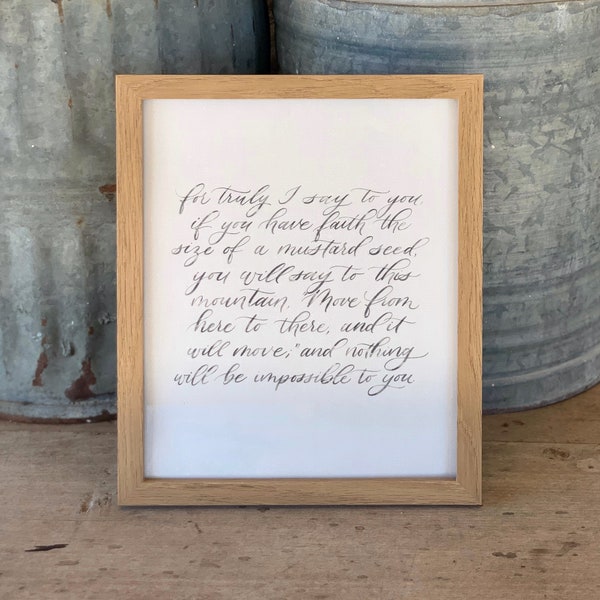 for truly I say to you,
if you have faith the
size of a mustard seed,
you will say to this
mountain, "Move from
here to there, and it
will move," and nothing
will be impossible to you